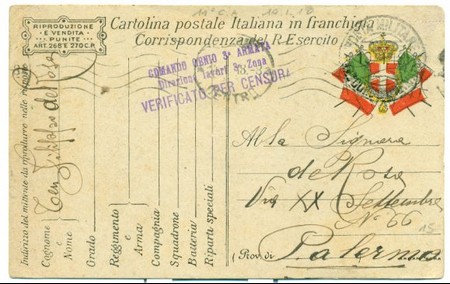 RIPRODUZIONE
E VENDITA
PUNITE
ART. 268 E 270 C.P.
Cartolina postale Italiana in franchigia
Corrispondenza del R. Esercito
COMANDO GENIO 3ª ARMATA
Direzione lavori 3ª Zona
VERIFICATO PER CENSURA
Indirizzo del mittente da riprodurre nelle risposte
Cognome e Nome
Grado
Reggimento e Arma
Compagnia
Squadrone
Batteria
Riparti speciali
Alla Signora
de Rosa
Via XX Settembre
N. 66
(Prov. di
Palermo
15